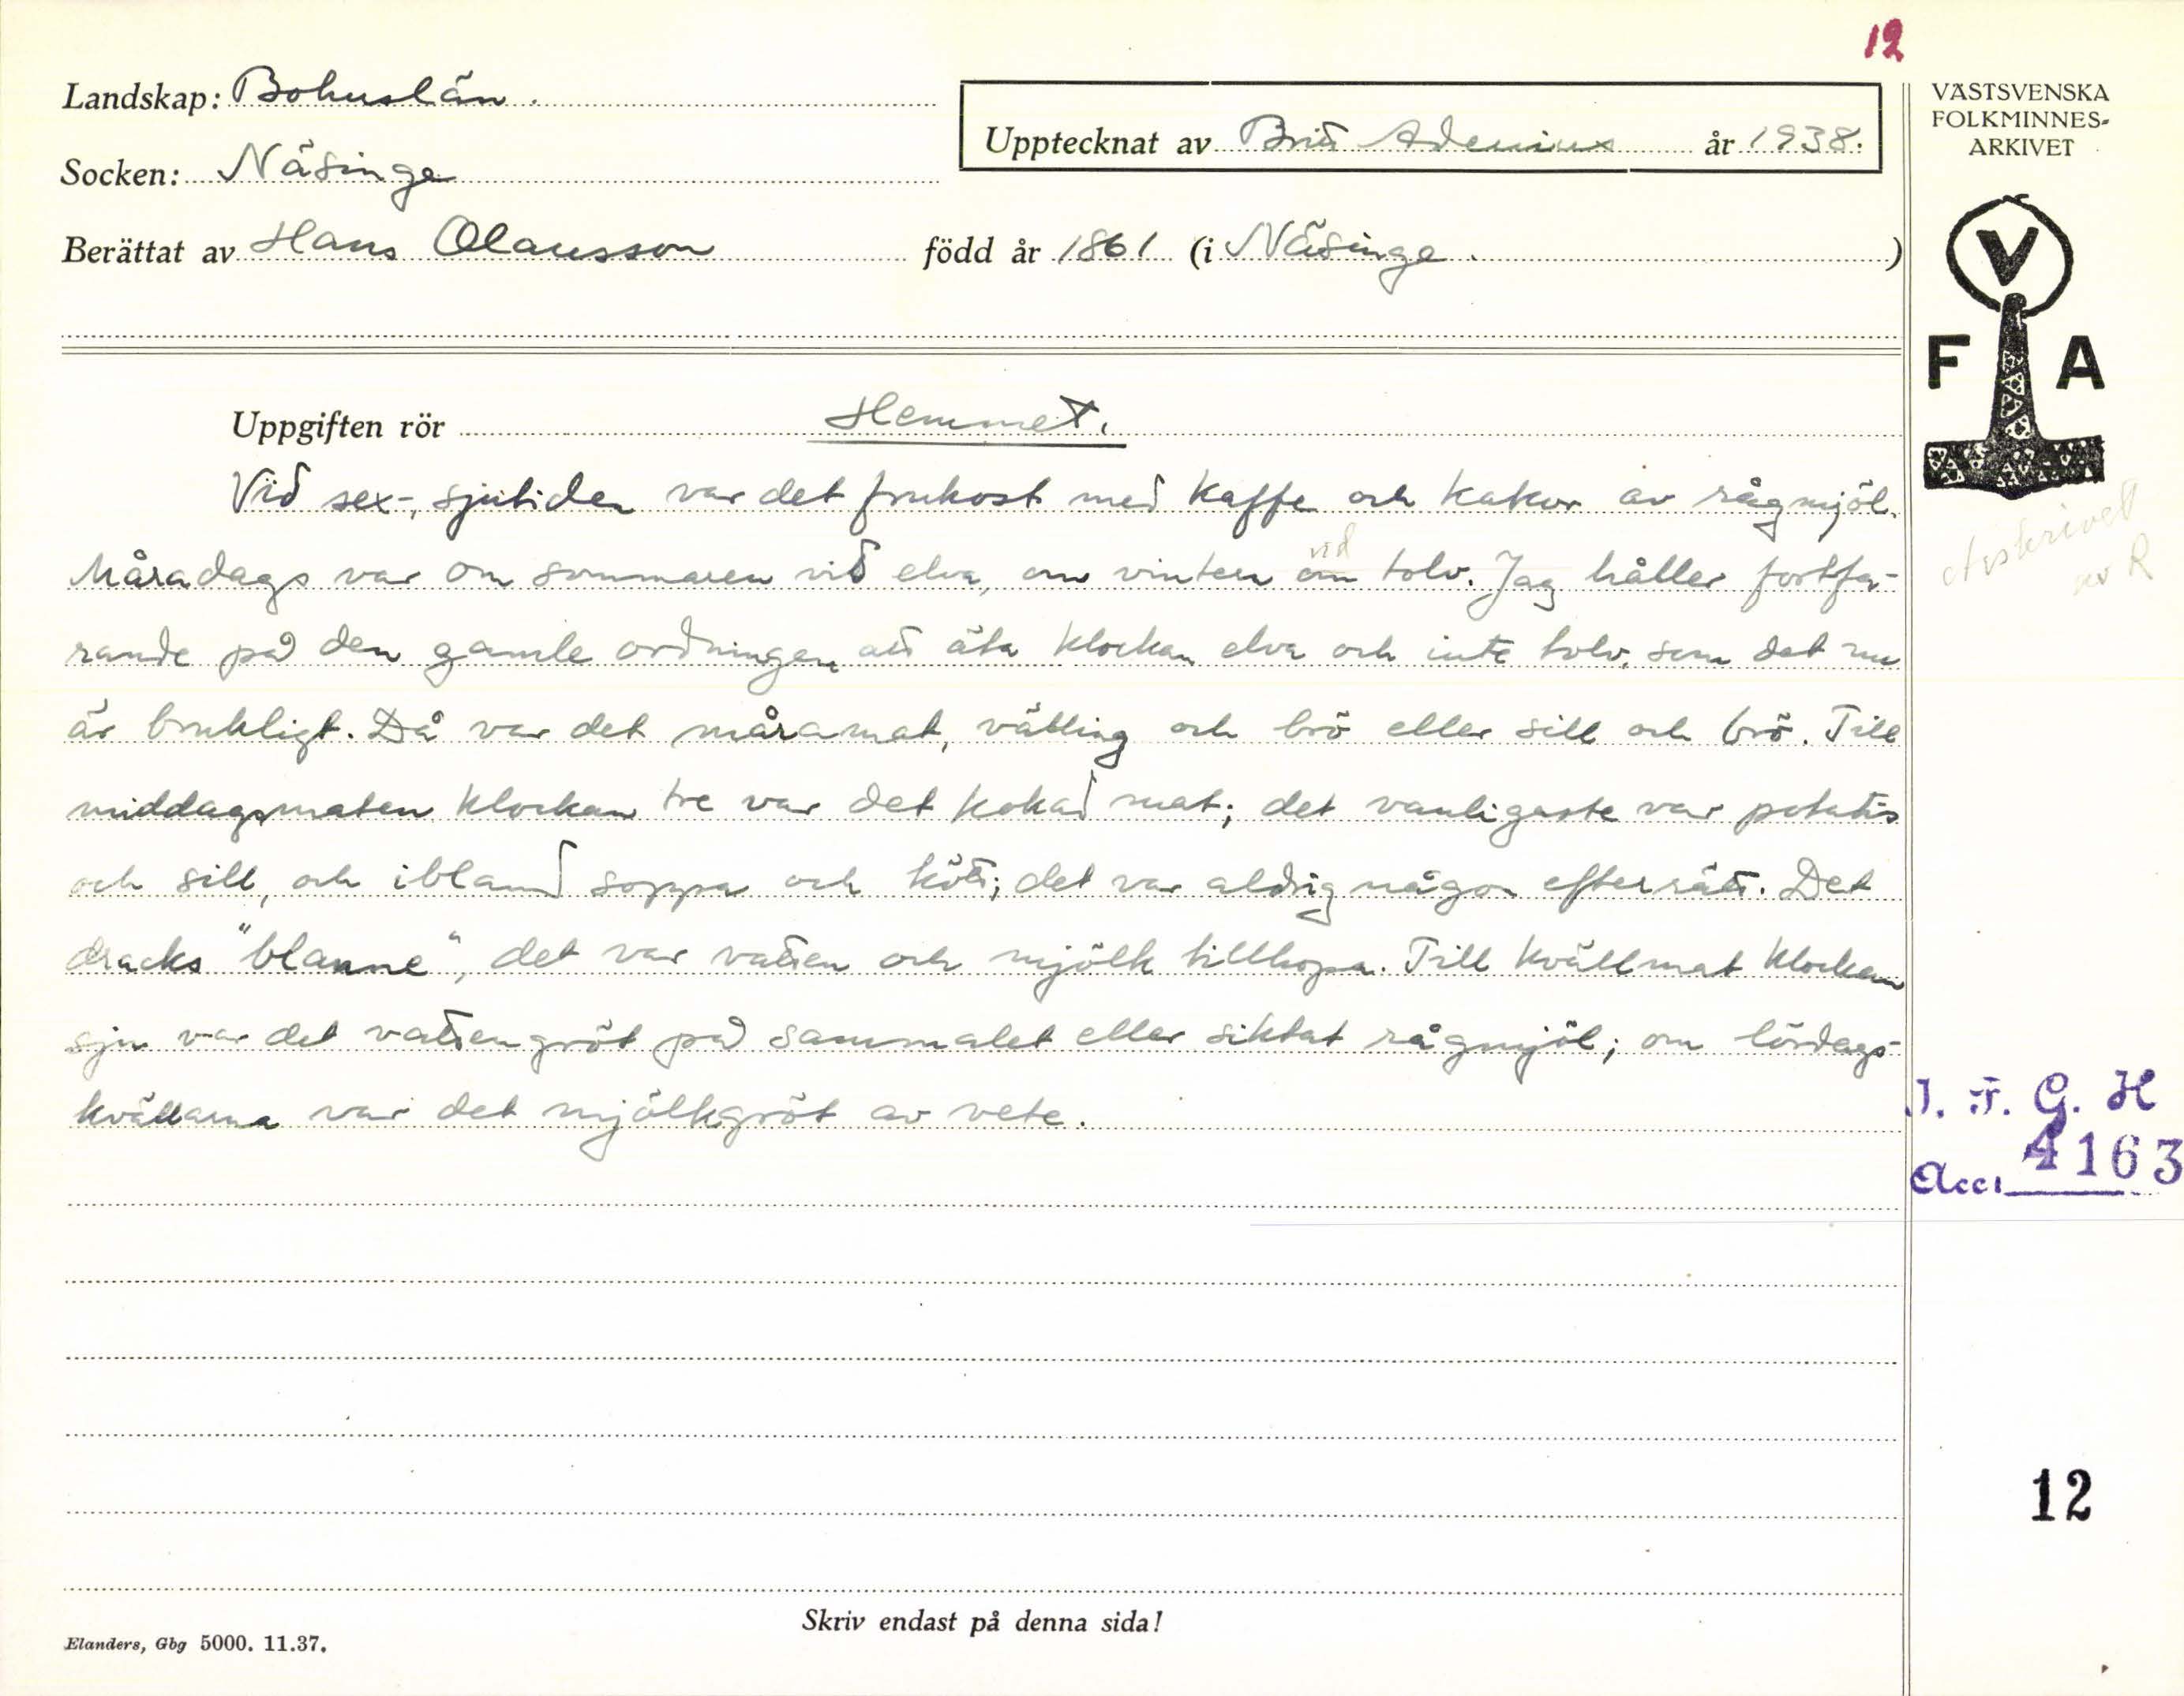 12
Landskap: Bohuslän.
Upptecknat av Britt Adenius år 1938.
Socken: Näsinge
Berättat av Hans Olausson född år 1861 (i Näsinge.)
VÄSTSVENSKA
FOLKMINNES-
ARKIVET
V
F A
Uppgiften rör Hemmet.
Vid sex-, sjutiden var det frukost med kaffe och kakor av rågmjöl.
Måradags var om sommaren vid elva, om vintern om vid tolv. Jag håller fortfa-
rande på den gamle ordningen att äta klockan elva och inte tolv, som det nu
är brukligt. Då var det måramat, välling och brö eller sill och brö. Till
middagsmaten klockan tre var det kokad mat; det vanligaste var potatis
och sill, och ibland soppa och kött; det var aldrig någon efterrätt. Det
dracks "blanne", det var vatten och mjölk tillhopa. Till kvällmat klockan
sju var det vattengröt på sammalet eller siktat rågmjöl; om lördags-
kvällarna var det mjölkgröt av vete.
Avskrivet
av R
I. F. G. H
Acc. 4163
12
Skriv endast på denna sida!
Elanders, Gbg 5000. 11.37.